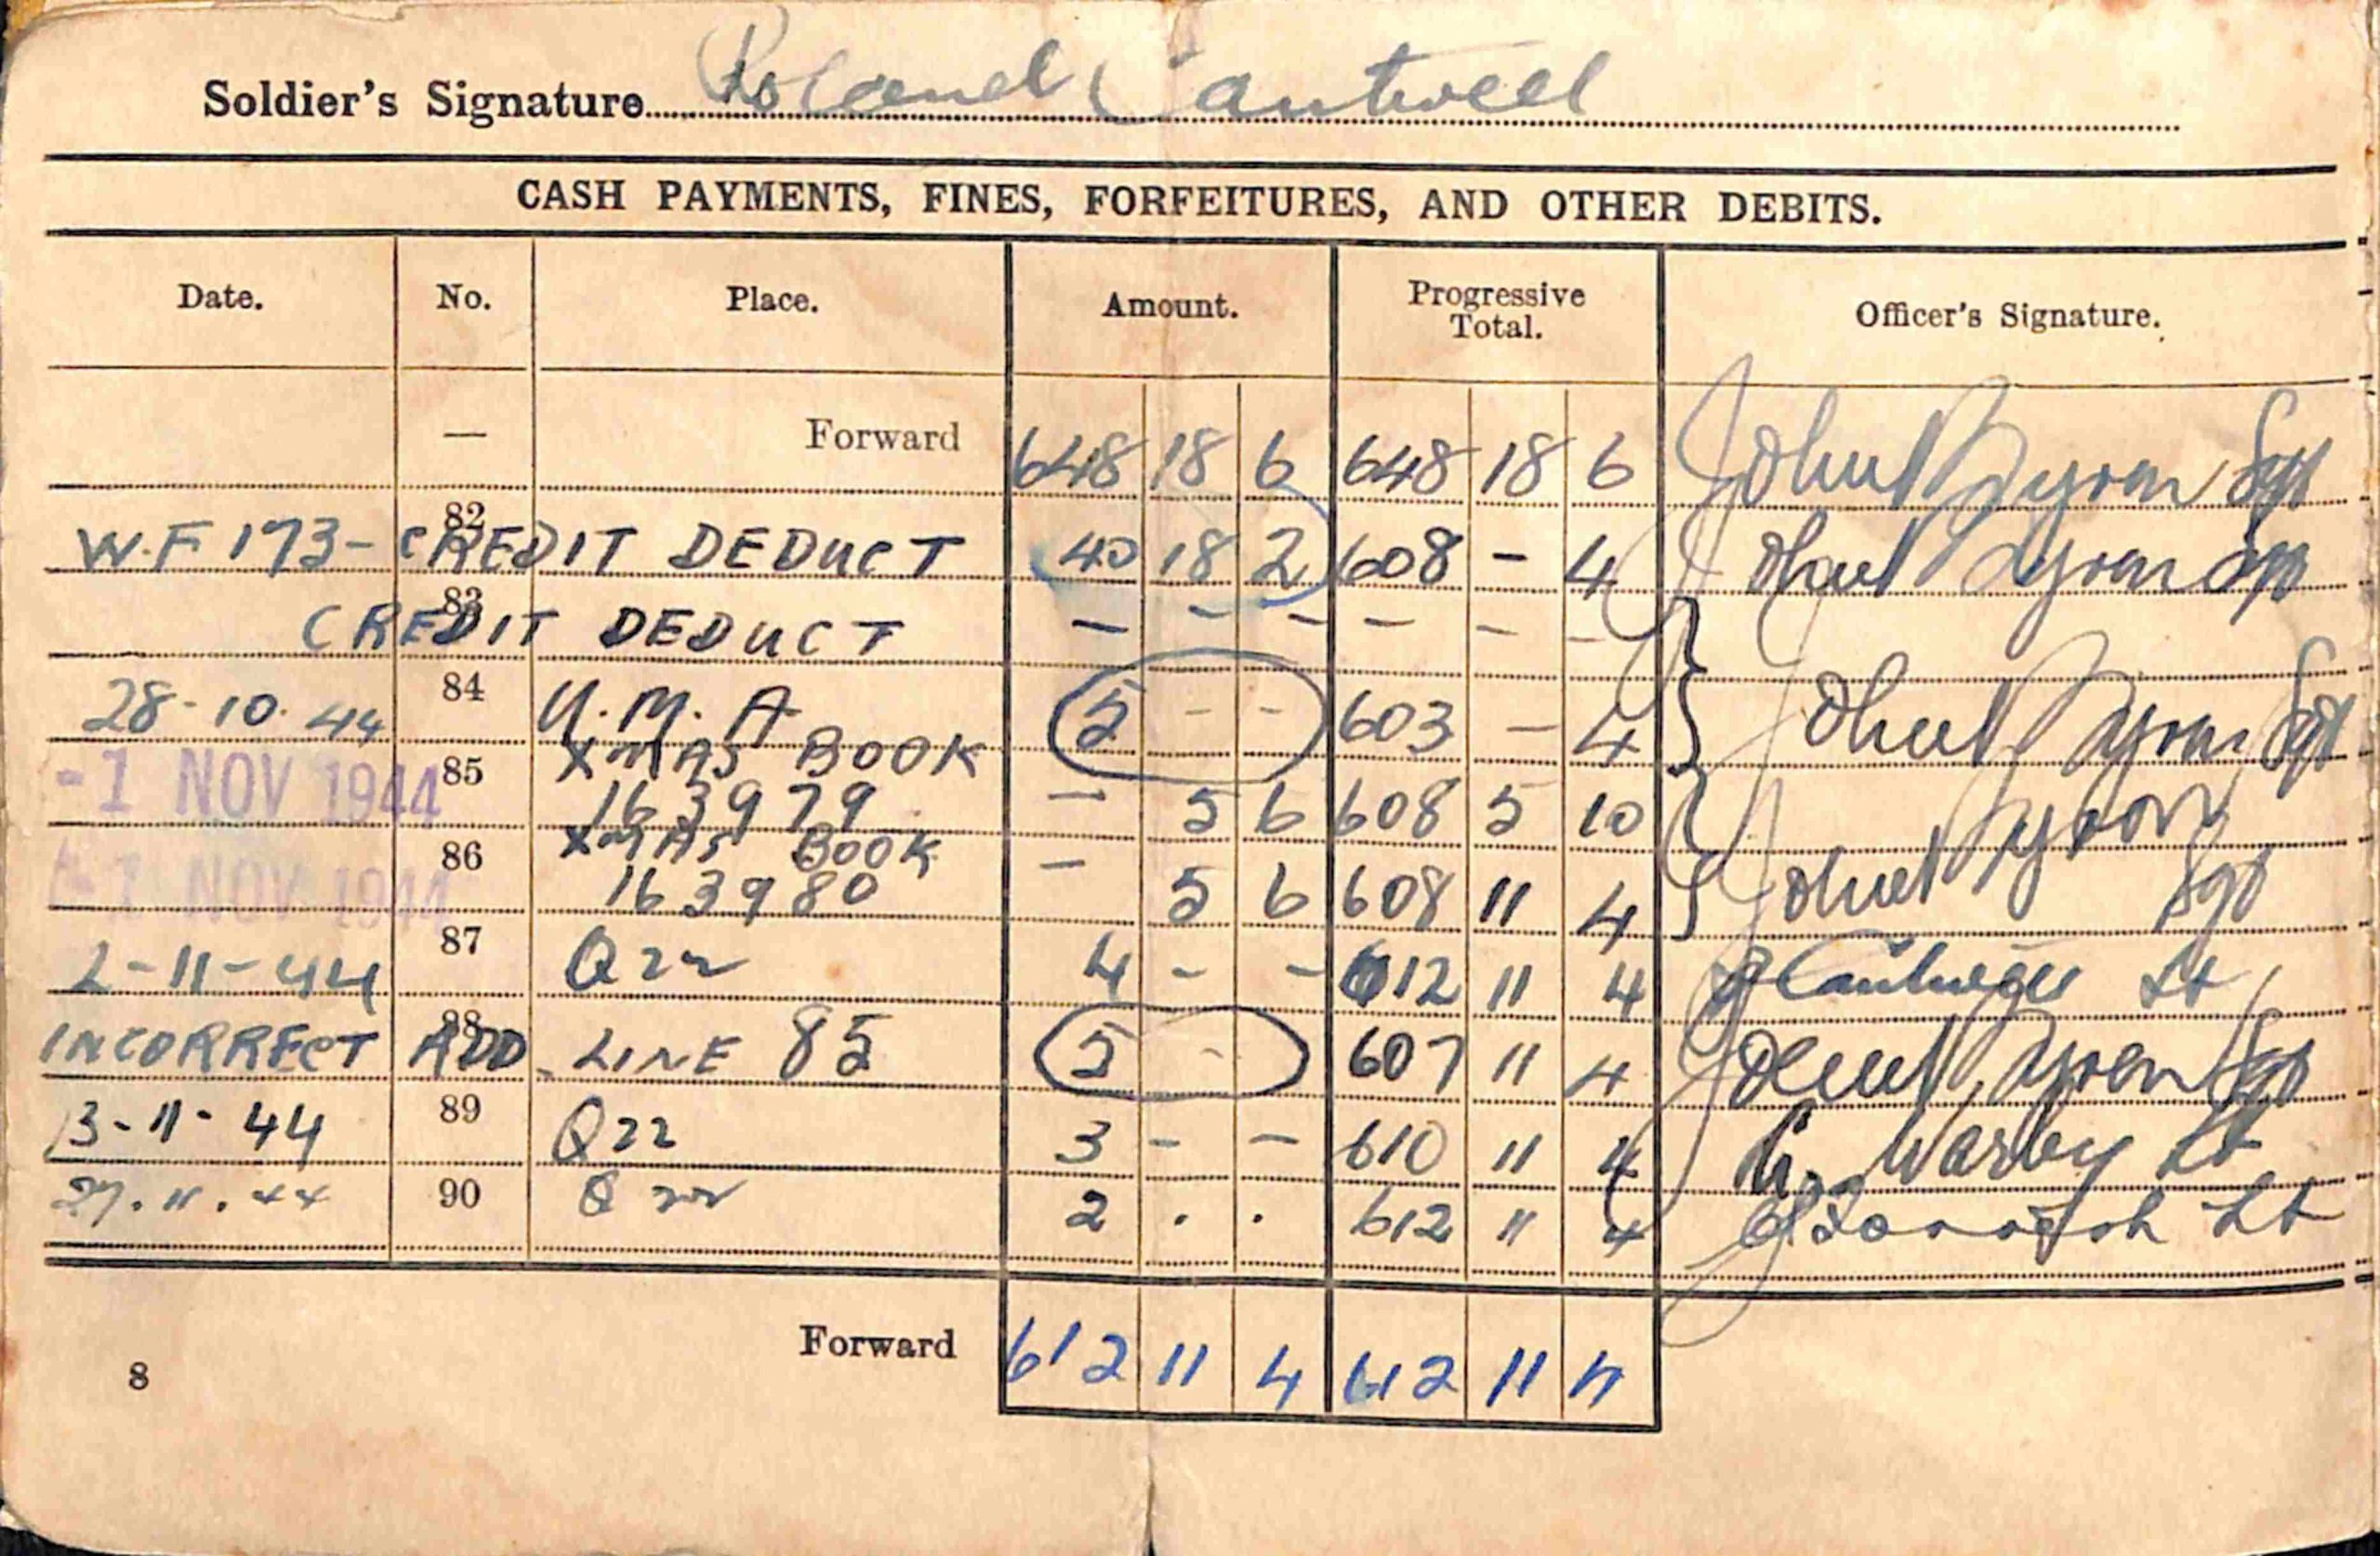 Soldier's Signature Roland Cantwell
CASH PAYMENTS, FINES, FORFEITURES, AND OTHER DEBITS.
Date. No. Place. Amount. Progressive Total. Officer's Signature.
— Forward 648 18 6 648 18 6 Sgt
W.F 173- 82 CREDIT DEDUCT 40 18 2 608 - 4 Sgt
83 CREDIT DEDUCT - - - - - -
28-10-44 84 U.M.A 5 - - 603 - 4 Sgt
-1 NOV 1944 85 XMAS BOOK 163979 - 5 6 608 5 10
-1 NOV 1944 86 XMAS BOOK 163980 - 5 6 608 11 4 Sgt
2-11-44 87 Q22 4 - - 612 11 4 Lt
INCORRECT 88 ADD LINE 85 5 - 607 11 4 Sgt
13-11-44 89 Q22 3 - - 610 11 4 Warby Lt
27.11.44 90 Q22 2 . . 612 11 4 Lt
Forward 612 11 4 612 11 4
8